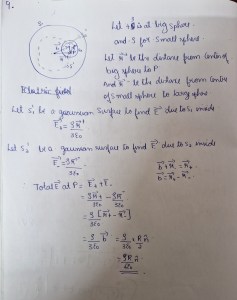 9.
Let +ρ is at big sphere
and -ρ for small sphere
Let r⃗+ be the distance from centre of
big sphere to P
And r⃗- be the distance from centre
of small sphere to
Electric field
Let S₁ be a gaussian surface to find E⃗ due to S₁ inside
E⃗+ = ρr⃗+/3ε₀
Let S₂ be a gaussian surface to find E⃗ due to S₂ inside
E⃗- = ρr⃗-/3ε₀
b⃗ + r⃗- = r⃗+
b⃗ = r⃗+ - r⃗-
Total E⃗ at P = E⃗+ + E⃗-
= ρr⃗+/3ε₀ - ρr⃗-/3ε₀
= ρ/3ε₀ [r⃗+ - r⃗-]
= ρ/3ε₀ b⃗ = ρ/3ε₀ R/2 n̂
= ρR/6ε₀ n̂